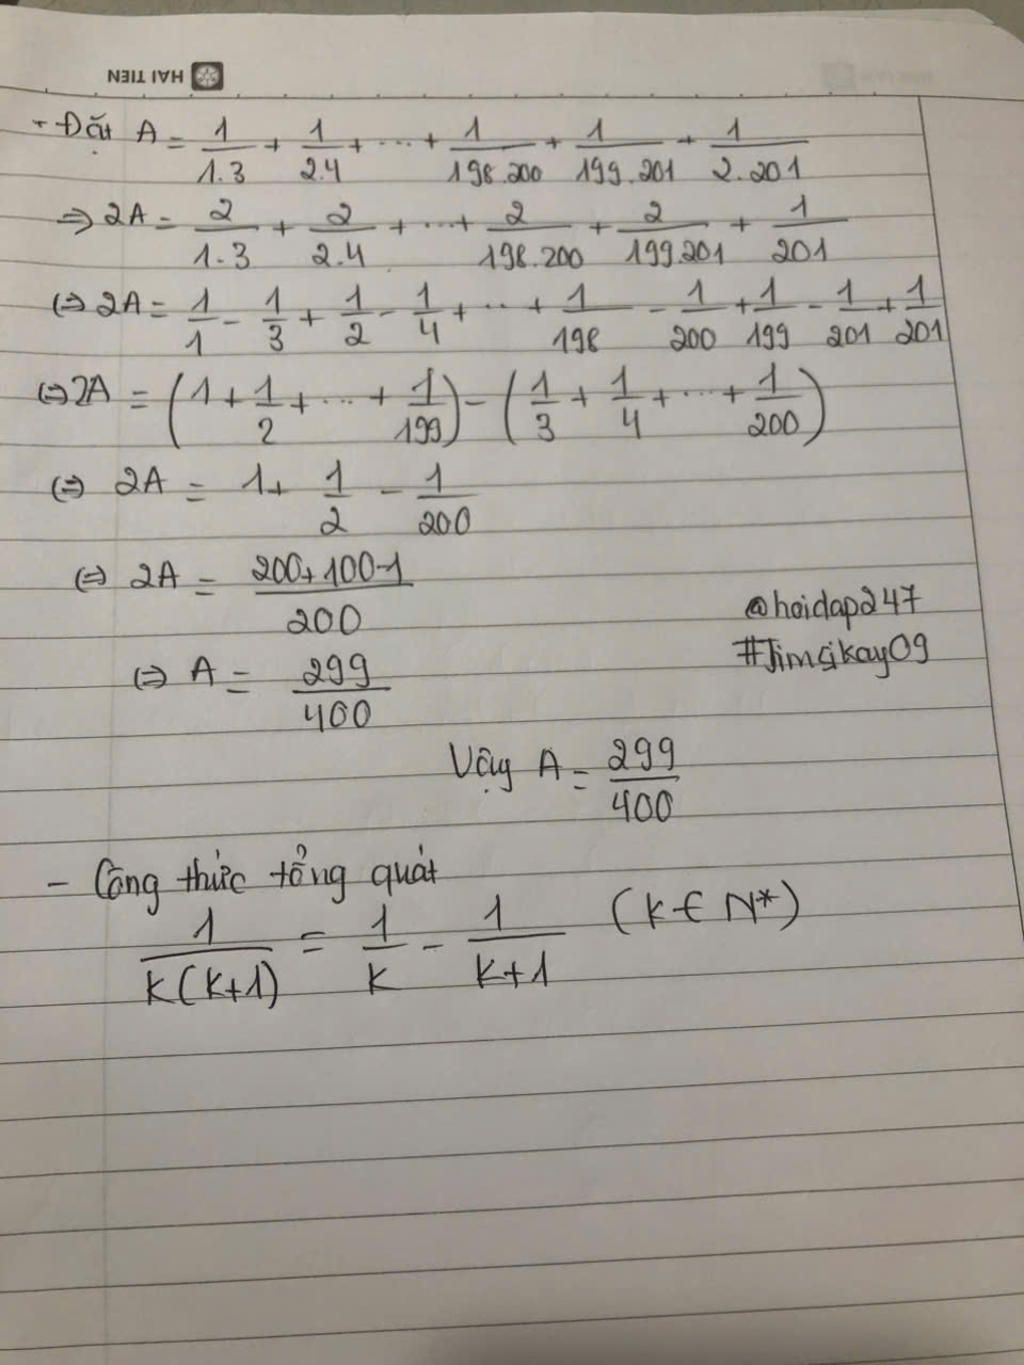 HẢI TIẾN
- Đặt A = 1/1.3 + 1/2.4 + ... + 1/198.200 + 1/199.201 + 1/2.201
⇒ 2A = 2/1.3 + 2/2.4 + ... + 2/198.200 + 2/199.201 + 1/201
(⇒ 2A = 1/1 - 1/3 + 1/2 - 1/4 + ... + 1/198 - 1/200 + 1/199 - 1/201 + 1/201
(⇒ 2A = (1 + 1/2 + ... + 1/199) - (1/3 + 1/4 + ... + 1/200)
(⇒) 2A = 1 + 1/2 - 1/200
(⇒) 2A = 200+100-1/200
(⇒) A = 299/400
@hoidap247
#JimsikayO9
Vậy A = 299/400
- Công thức tổng quát
1/k(k+1) = 1/k - 1/k+1 (k ∈ N*)